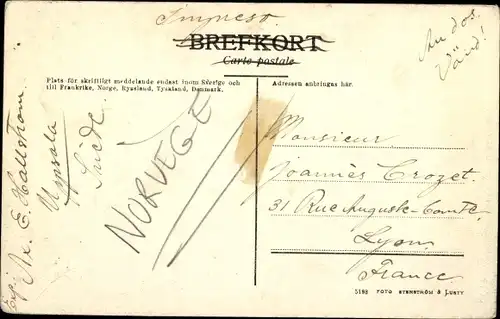 Imprest.
BREFKORT
Carte postale
An dos.
Vänd!
Plats för skriftligt meddelande endast inom Sverige och
till Frankrike, Norge, Ryssland, Tyskland, Danmark.
Adressen anbringas här.
NORVÈGE
Monsieur
Joannès Crozet.
31 Rue Auguste-Comte.
Lyon.
France
E. Hallström
Upsala
Suède.
5193 FOTO STENSTRÖM & LUSTY